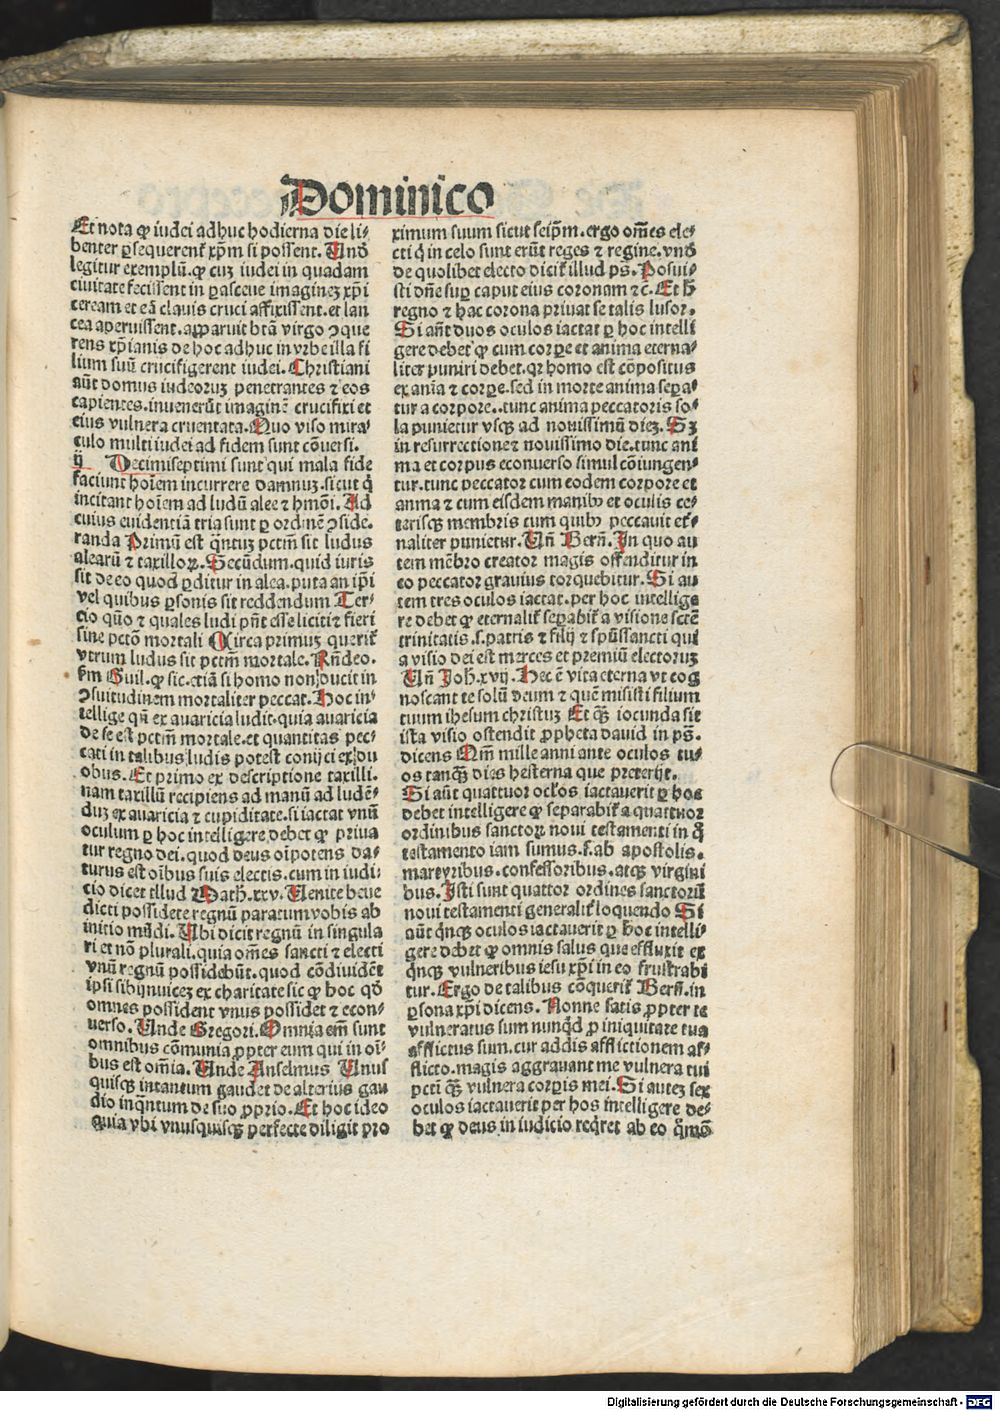 Dominico
Et nota ꝙ iudei adhuc hodierna die li⸗
benter ꝑsequerent᷑ xp̄m si possent. Vnd̄
legitur exemplū. ꝙ cuꝫ iudei in quadam
ciuitate fecissent in ꝑasceue imagineꝫ xp̄i
ceream et eā clauis cruci affixissent. et lan
cea aperuissent. apparuit btā virgo ꝯque
rens xp̄ianis de hoc adhuc in vrbe illa fi
lium suū crucifigerent iudei. Christiani
aūt domus iudeoruꝫ penetrantes ⁊ eos
capientes. inuenerūt imaginē crucifixi et
eius vulnera cruentata. Quo viso mira⸗
culo multi iudei ad fidem sunt cōuersi.
ij Decimiseptimi sunt qui mala fide
faciunt hoīem incurrere damnuꝫ. sicut q̇
incitant hoīem ad ludū alee ⁊ hmōi. Ad
cuius euidentiā tria sunt ꝑ ordinē ꝯside.
randa Primū est q̇ntuꝫ pctm̄ sit ludus
alearū ⁊ taxilloꝝ. Secūdum. quid iuris
sit de eo quod ꝑditur in alea. puta an ip̄i
vel quibus ꝑsonis sit reddendum Ter⸗
cio quō ⁊ quales ludi pn̄t esse liciti ⁊ fieri
sine pctō mortali Circa primuꝫ querit᷑
vtrum ludus sit pctm̄ mortale. Rn̄deo.
fm Guil. ꝙ sic. etiā si homo non ducit in
ꝯsuitudinem mortaliter peccat. Hoc in⸗
tellige qn̄ ex auaricia ludit. quia auaricia
de se est pctm̄ mortale. et quantitas pec⸗
cati in talibus ludis potest conijci ex du
obus. Et primo ex descriptione taxilli.
nam taxillū recipiens ad manū ad ludē⸗
duꝫ ex auaricia ⁊ cupiditate. si iactat vnū
oculum ꝑ hoc intelligere debet ꝙ priua
tur regno dei. quod deus oīpotens da⸗
turus est oībus suis electis. cum in iudi⸗
cio dicet illud Math. xxv. Uenite bene
dicti possidete regnū paratum vobis ab
initio mūdi. Ubi dicit regnū in singula
ri et nō plurali. quia om̄es sancti ⁊ electi
vnū regnū possidebūt. quod cōdiuidēt
ipsi sibijnuiceꝫ ex charitate sic ꝙ hoc qḋ
omnes possident vnus possidet ⁊ econ⸗
uerso. Unde Gregori. Omnia em̄ sunt
omnibus cōmunia ꝓpter eum qui in oī⸗
bus est om̄ia. Unde Anselmus Unus
quisqꝫ intantum gaudet de alterius gau
dio inq̇ntum de suo ꝓprio. Et hoc ideo
quia vbi vnusquisqꝫ perfecte diligit pro
ximum suum sicut seip̄m. ergo om̄es ele⸗
cti q̇ in celo sunt erūt reges ⁊ regine. vnd̄
de quolibet electo dicit᷑ illud ps̄. Posui⸗
sti dn̄e suꝑ caput eius coronam ⁊c̄. Et h̄
regno ⁊ hac corona priuat se talis lusor.
Si aūt duos oculos iactat ꝑ hoc intelli
gere debet ꝙ cum corꝑe et anima eterna⸗
liter puniri debet. qꝛ homo est cōpositus
ex anīa ⁊ corꝑe. sed in morte anima seꝑa⸗
tur a corpore.. tunc anima peccatoris so⸗
la punietur vsqꝫ ad nouissimū dieꝫ. Sꝫ
in resurrectione ⁊ nouissimo die. tunc ani
ma et corpus econuerso simul cōiungen⸗
tur. tunc peccator cum eodem corpore et
anma ⁊ cum eisdem manibꝰ et oculis ce⸗
terisqꝫ membris cum quibꝰ peccauit et᷑⸗
naliter punietur. Un̄ Bern̄. In quo au
tem mēbro creator magis offenditur in
eo peccator grauius torquebitur. Si au
tem tres oculos iactat. per hoc intellige
re debet ꝙ eternalit᷑ seꝑabit᷑ a visione scte
trinitatis. s. patris ⁊ filij ⁊ spūssancti qui
a visio dei est merces et premiū electoruꝫ
Un̄ Joh. xvij. Hec ē vita eterna vt cog
noscant te solū deum ⁊ quē misisti filium
tuum ihesum christuꝫ Et qꝫ iocunda sit
ista visio ostendit ꝓpheta dauid in ps̄.
dicens Qm̄ mille anni ante oculos tu⸗
os tanqꝫ dies hesterna que preterijt.
Si aūt quattuor oclōs iactauerit ꝑ hos
debet intelligere ꝙ separabit᷑ a quattuor
ordinibus sanctoꝝ noui testamenti in q̇
testamento iam sumus. s. ab apostolis.
martyribus. confessoribus. atqꝫ virgini
bus. Isti sunt quattor ordines sanctorū
noui testamenti generalit᷑ loquendo Si
aūt q̇nqꝫ oculos iactauerit ꝑ hoc intelli⸗
gere debet ꝙ omnis salus que effluxit ex
q̇nqꝫ vulneribus iesu xp̄i in eo frustrabi
tur. Ergo de talibus cōquerit᷑ Bern̄. in
ꝑsona xp̄i dicens. Nonne satis ꝓpter te
vulneratus sum nunq̇d ꝓ iniquitate tua
afflictus sum. cur addis afflictionem af⸗
flicto. magis aggrauant me vulnera tui
pcti qꝫ vulnera corꝑis mei. Si auteꝫ sex
oculos iactauerit per hos intelligere de⸗
bet ꝙ deus in iudicio req̇ret ab eo
Digitalisierung gefördert durch die Deutsche Forschungsgemeinschaft - DFG